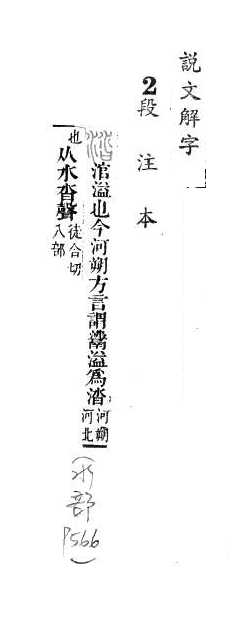 説文解字
2段注本
涫溢也今河朔方言謂溢爲涾河朔
河北
也从水沓聲徒合切
八部
(水部 P566)